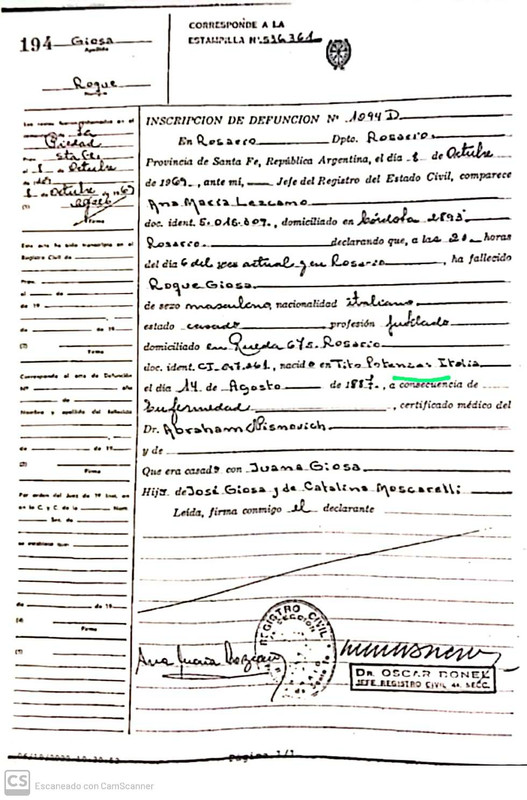 CORRESPONDE A LA
194 Giosa
Apellido
ESTAMPILLA Nº 536361
Roque
INSCRIPCION DE DEFUNCION Nº 1094 D
En Rosario Dpto. Rosario
Provincia de Santa Fe, República Argentina, el día 8 de Octubre
de 1969, ante mí, Jefe del Registro del Estado Civil, comparece
Ana María Lezcano
doc. ident. 5.016.007, domiciliado en Córdoba 2893
Rosario declarando que, a las 20 horas
del día 6 del mes actual y en Rosario, ha fallecido
Roque Giosa
de sexo masculino, nacionalidad italiano
estado casado profesión jubilado
domiciliado en Rueda 675. Rosario
doc. ident. CI. nacido en Tito Potenzas Italia
el día 14 de Agosto de 1887, a consecuencia de
Enfermedad, certificado médico del
Dr. Abraham Nisnovich
y de
Que era casado con Juana Giosa
Hijo de José Giosa y de Catalina Moscarelli
Leída, firma conmigo el declarante
Las notas
La
Piedad
Sta Fe
8 de Octubre
Octubre
Firma
Este acta ha sido transcripta en el
Registro Civil de
de 19
(2)
Firma
Corresponde al acta de Defunción
Nº año
de
Nombre y apellido del fallecido
de de 19
(3)
Firma
Por orden del Juez de 1ª Inst. en
en lo C. y C. de la Nom.
Sec. de
de de 19
(4)
Firma
REGISTRO CIVIL
SECCION
Dr. OSCAR BONEL
JEFE REGISTRO CIVIL 4a. SECC.
Página 1/1
CS Escaneado con CamScanner